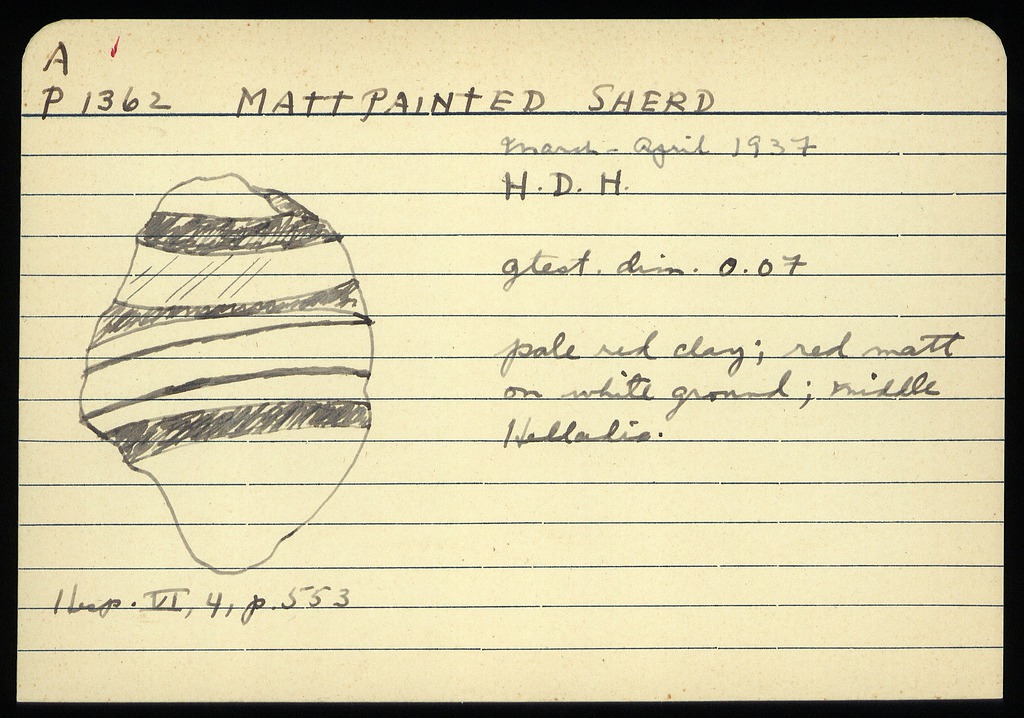 A
P 1362 MATTPAINTED SHERD
March - April 1937
H. D. H.
gtest. dim. 0.07
pale red clay; red matt
on white ground; Middle
Helladic.
Hesp. VI, 4, p. 553